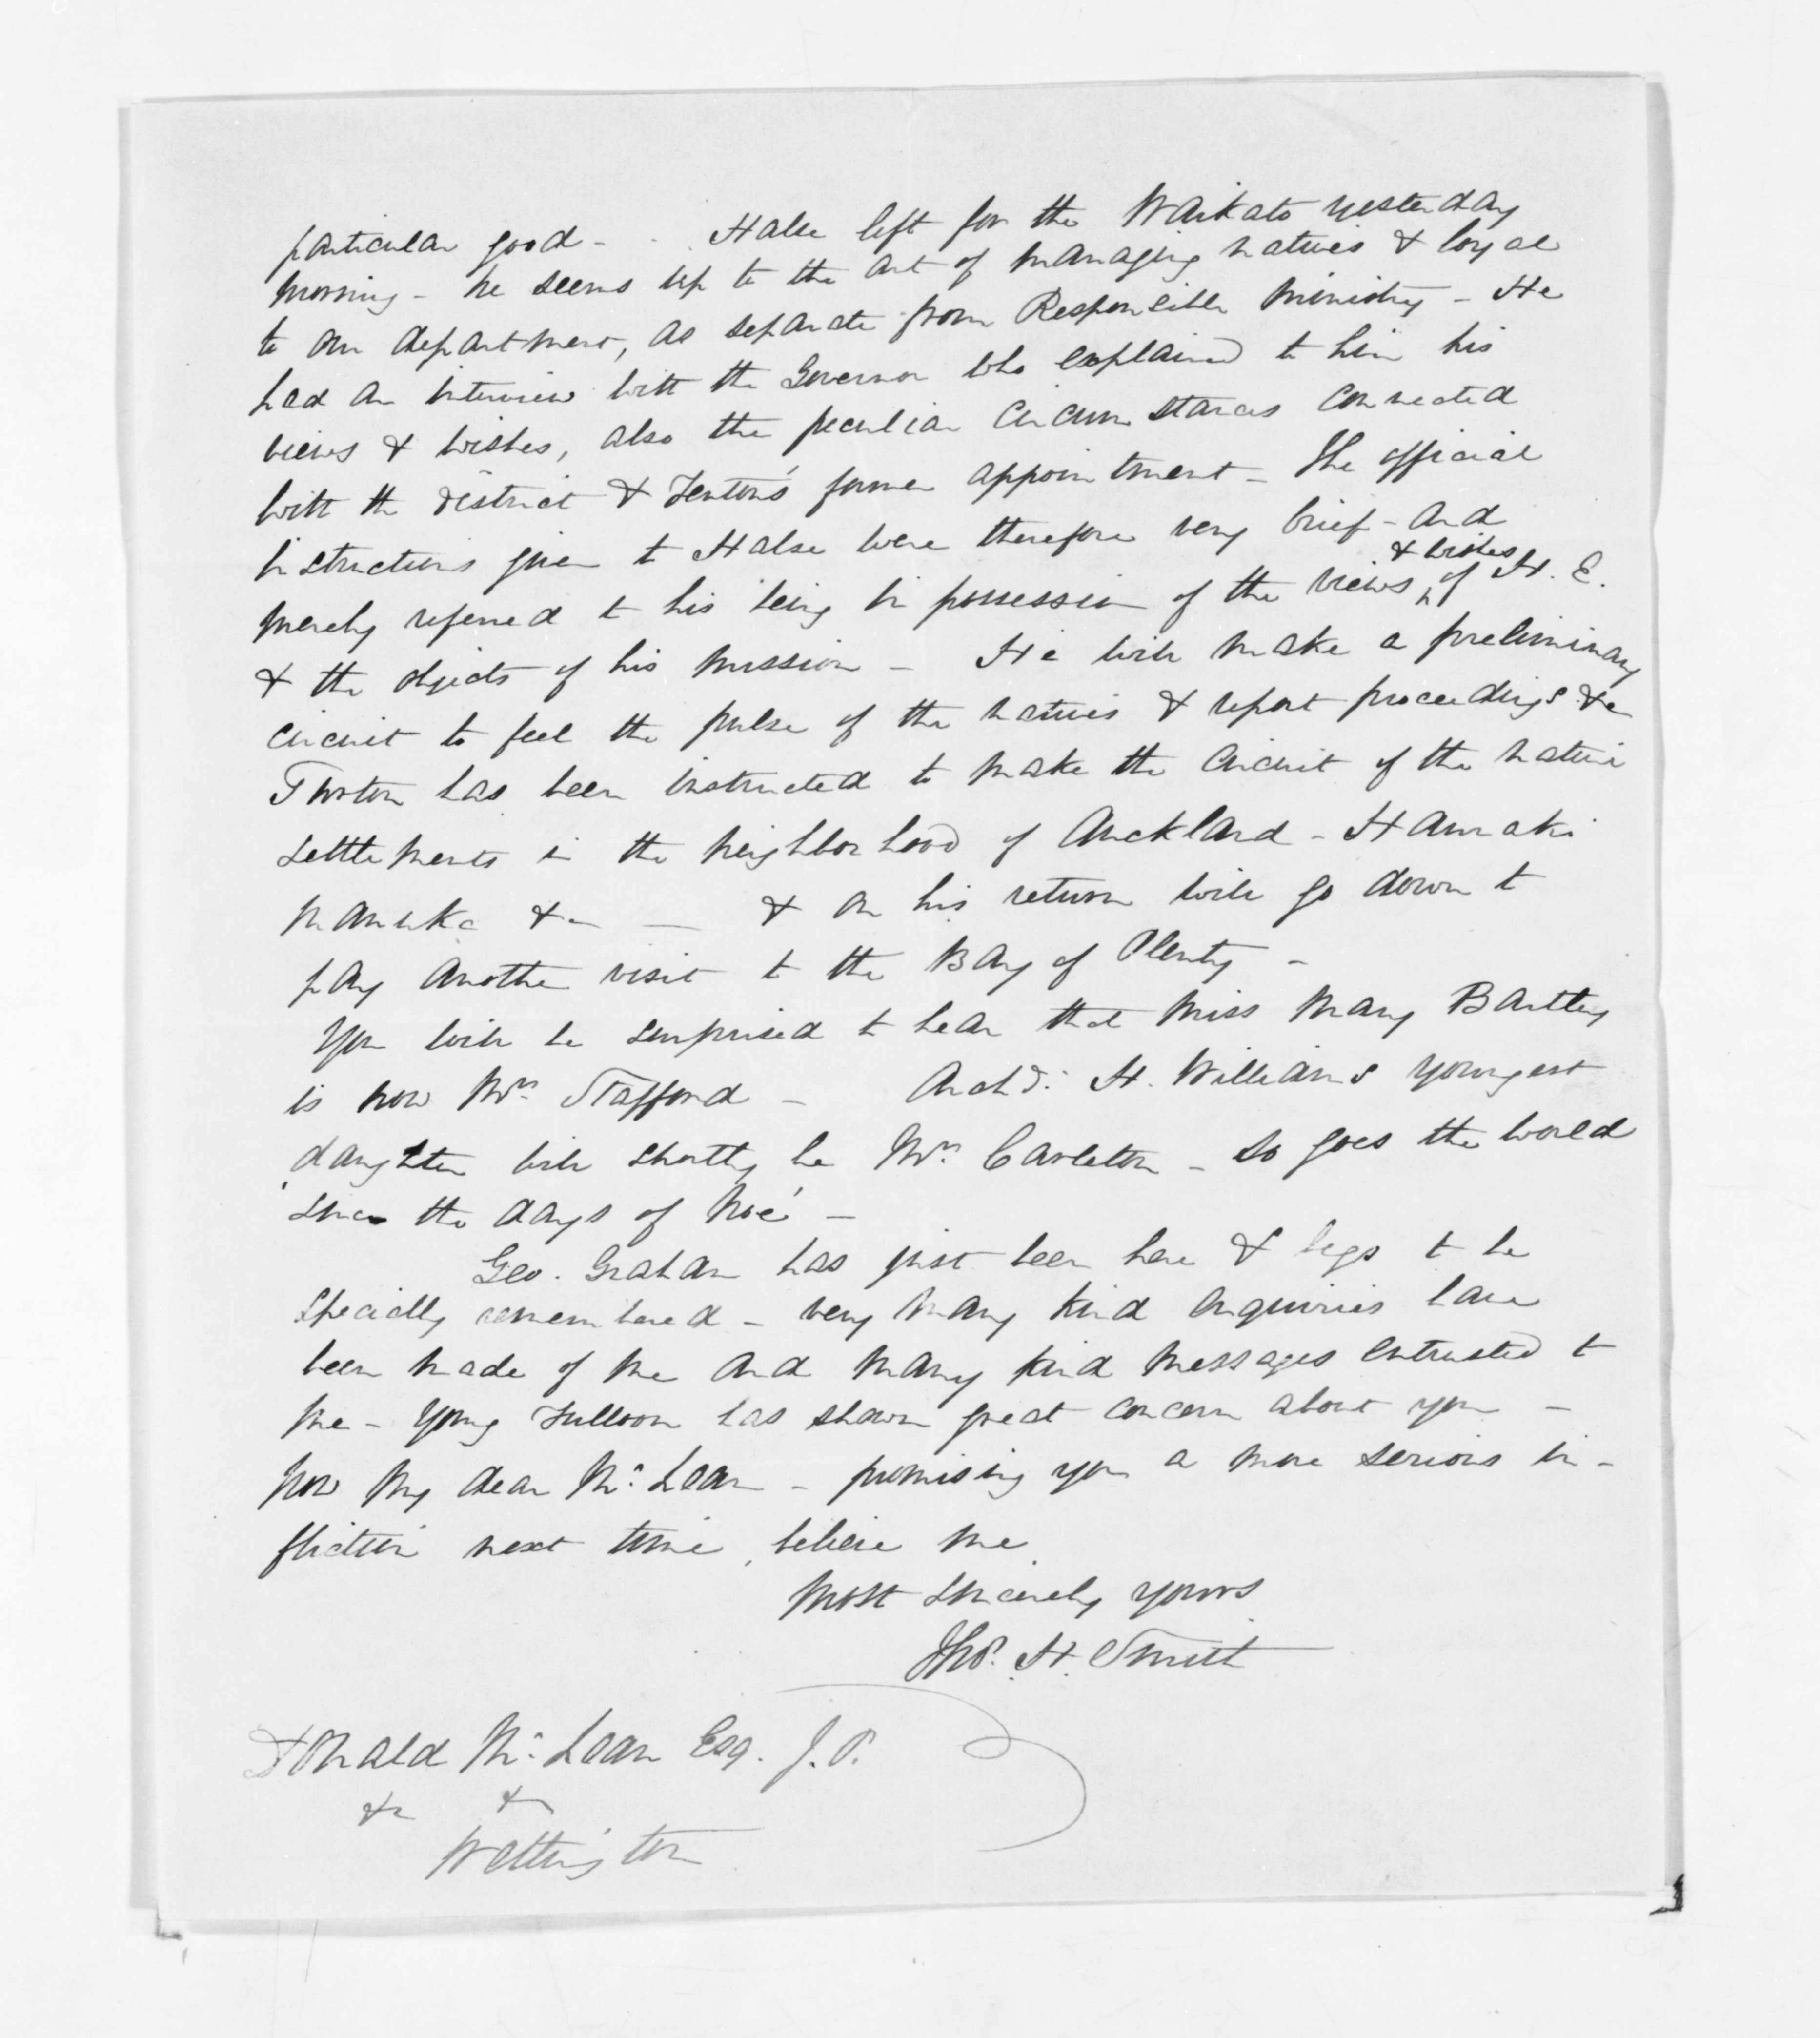 particular good - - Halse left for the Waikato yesterday
morning - he seems up to the art of managing natives & loyal
to our department, as separate from Responsible Ministry - He
had an interview with the Governor who explained to him his
views & wishes, also the peculiar circumstances connected
with the district & Fenton's former appointment - The official
instructions given to Halse were therefore very brief - and
merely referred to his being in possession of the views & wishes of H. E.
& the objects of his mission - He will make a preliminary
circuit to feel the pulse of the natives & report proceedings &c
Turton has been instructed to make the circuit of the native
settlements in the neighborhood of Auckland - Hauraki
Manuka &c - & on his return will go down to
pay another visit to the Bay of Plenty -
You will be surprised to hear that Miss Mary Bartley
is now Mrs Stafford - Archd. H. Williams youngest
daughter will shortly be Mrs Carleton - So goes the world
since the days of Noé -
Geo. Graham has just been here & begs to be
specially remembered - very many kind enquiries have
been made of me and many kind messages entrusted to
me - Young Fulloon has shown great concern about you -
Now my dear McLean - promising you a more serious in-
fliction next time, believe me
Most sincerely yours
Thos. H. Smith
Donald McLean Esq. J.P.
&c &c
Wellington